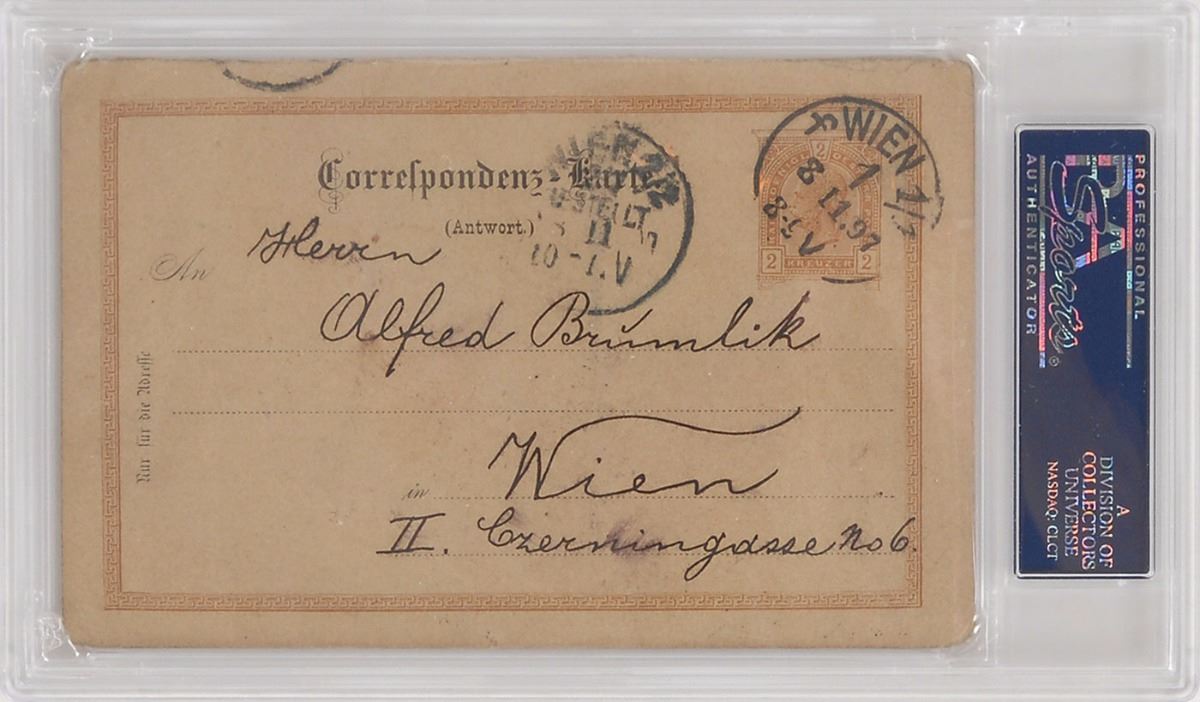 Correspondenz-Karte.
(Antwort.)
WIEN 1/1
8 11.97
8-9 V
WIEN 2/2
8 11
10-1.V
2
2 KREUZER 2
An Herrn
Alfred Brŭmlik
in Wien
II. Czerningasse No 6.
Nur für die Adresse
PSA
Sports
®
PROFESSIONAL
AUTHENTICATOR
A
DIVISION OF
COLLECTORS
UNIVERSE
NASDAQ: CLCT